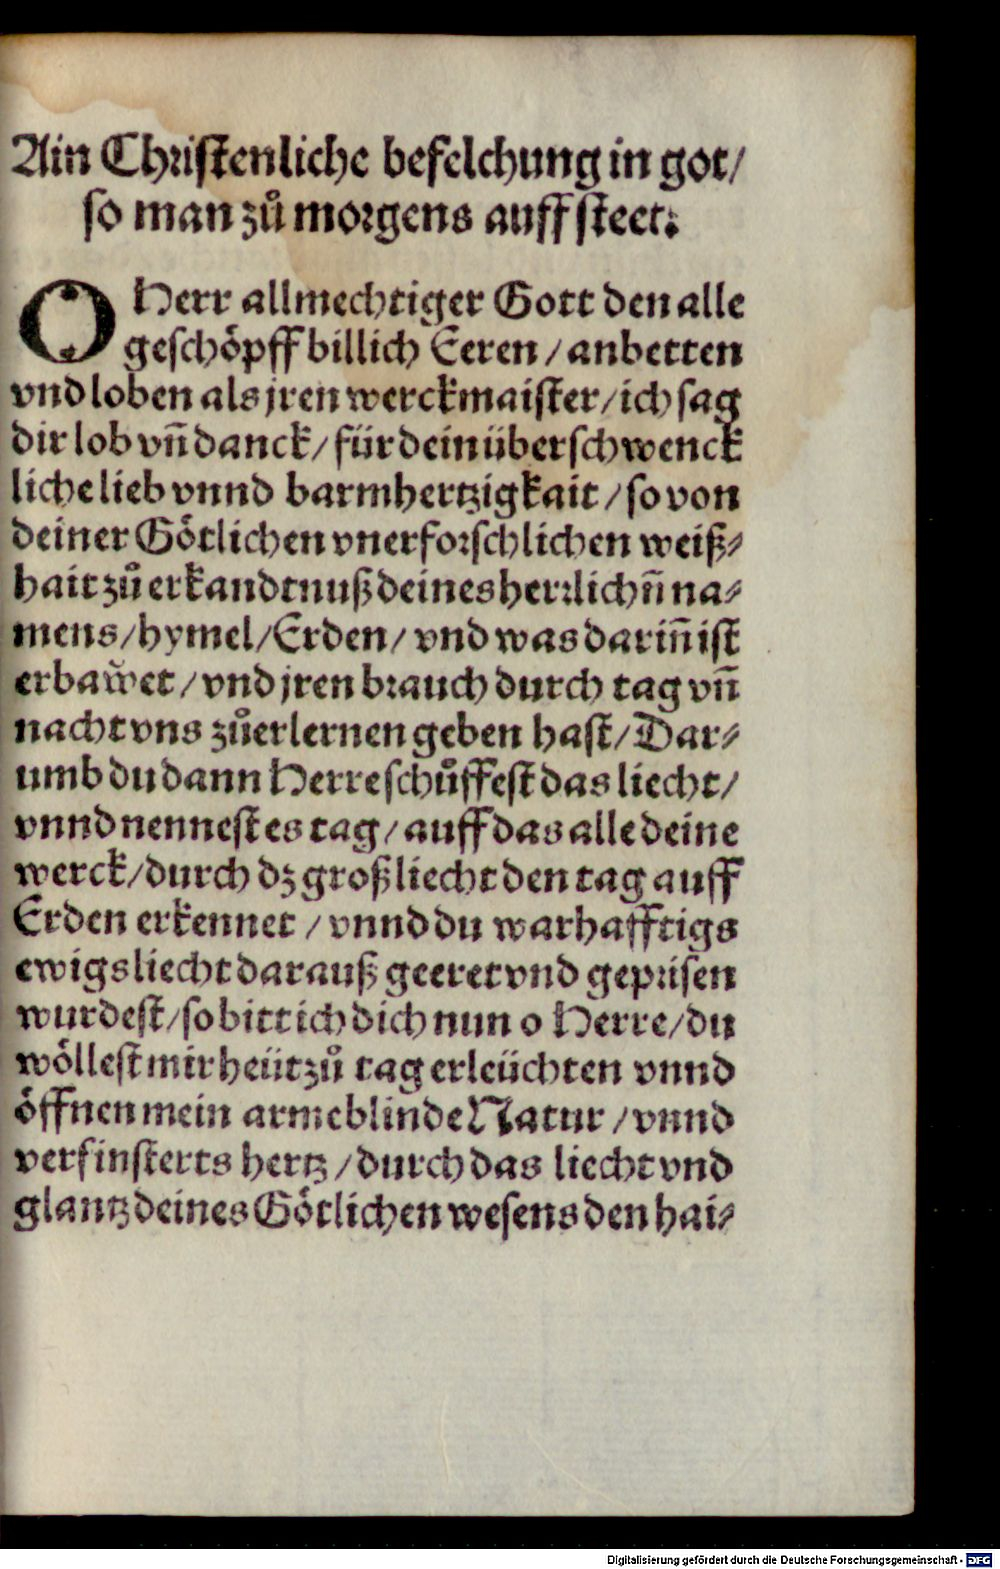 Ain Christenliche befelchung in got/
so man zů morgens auff steet:
O Herr allmechtiger Gott den alle
geschöpff billich Eeren / anbetten
vnd loben als jren werckmaister / ich sag
dir lob vñ danck / für dein überschwenck
liche lieb vnnd barmhertzigkait / so von
deiner Götlichen vnerforschlichen weiß⸗
hait zů erkandtnuß deines herrlichñ na⸗
mens / hymel / Erden / vnd was dariñ ist
erbawet / vnd jren brauch durch tag vñ
nacht vns zůerlernen geben hast / Dar⸗
umb du dann Herre schůffest das liecht /
vnnd nennest es tag / auff das alle deine
werck / durch dz groß liecht den tag auff
Erden erkennet / vnnd du warhafftigs
ewigs liecht darauß geeret vnd geprisen
wurdest / so bitt ich dich nun o Herre / du
wöllest mir heüt zů tag erleüchten vnnd
öffnen mein arme blinde Natur / vnnd
verfinsterts hertz / durch das liecht vnd
glantz deines Götlichen wesens den hai⸗
Digitalisierung gefördert durch die Deutsche Forschungsgemeinschaft - DFG